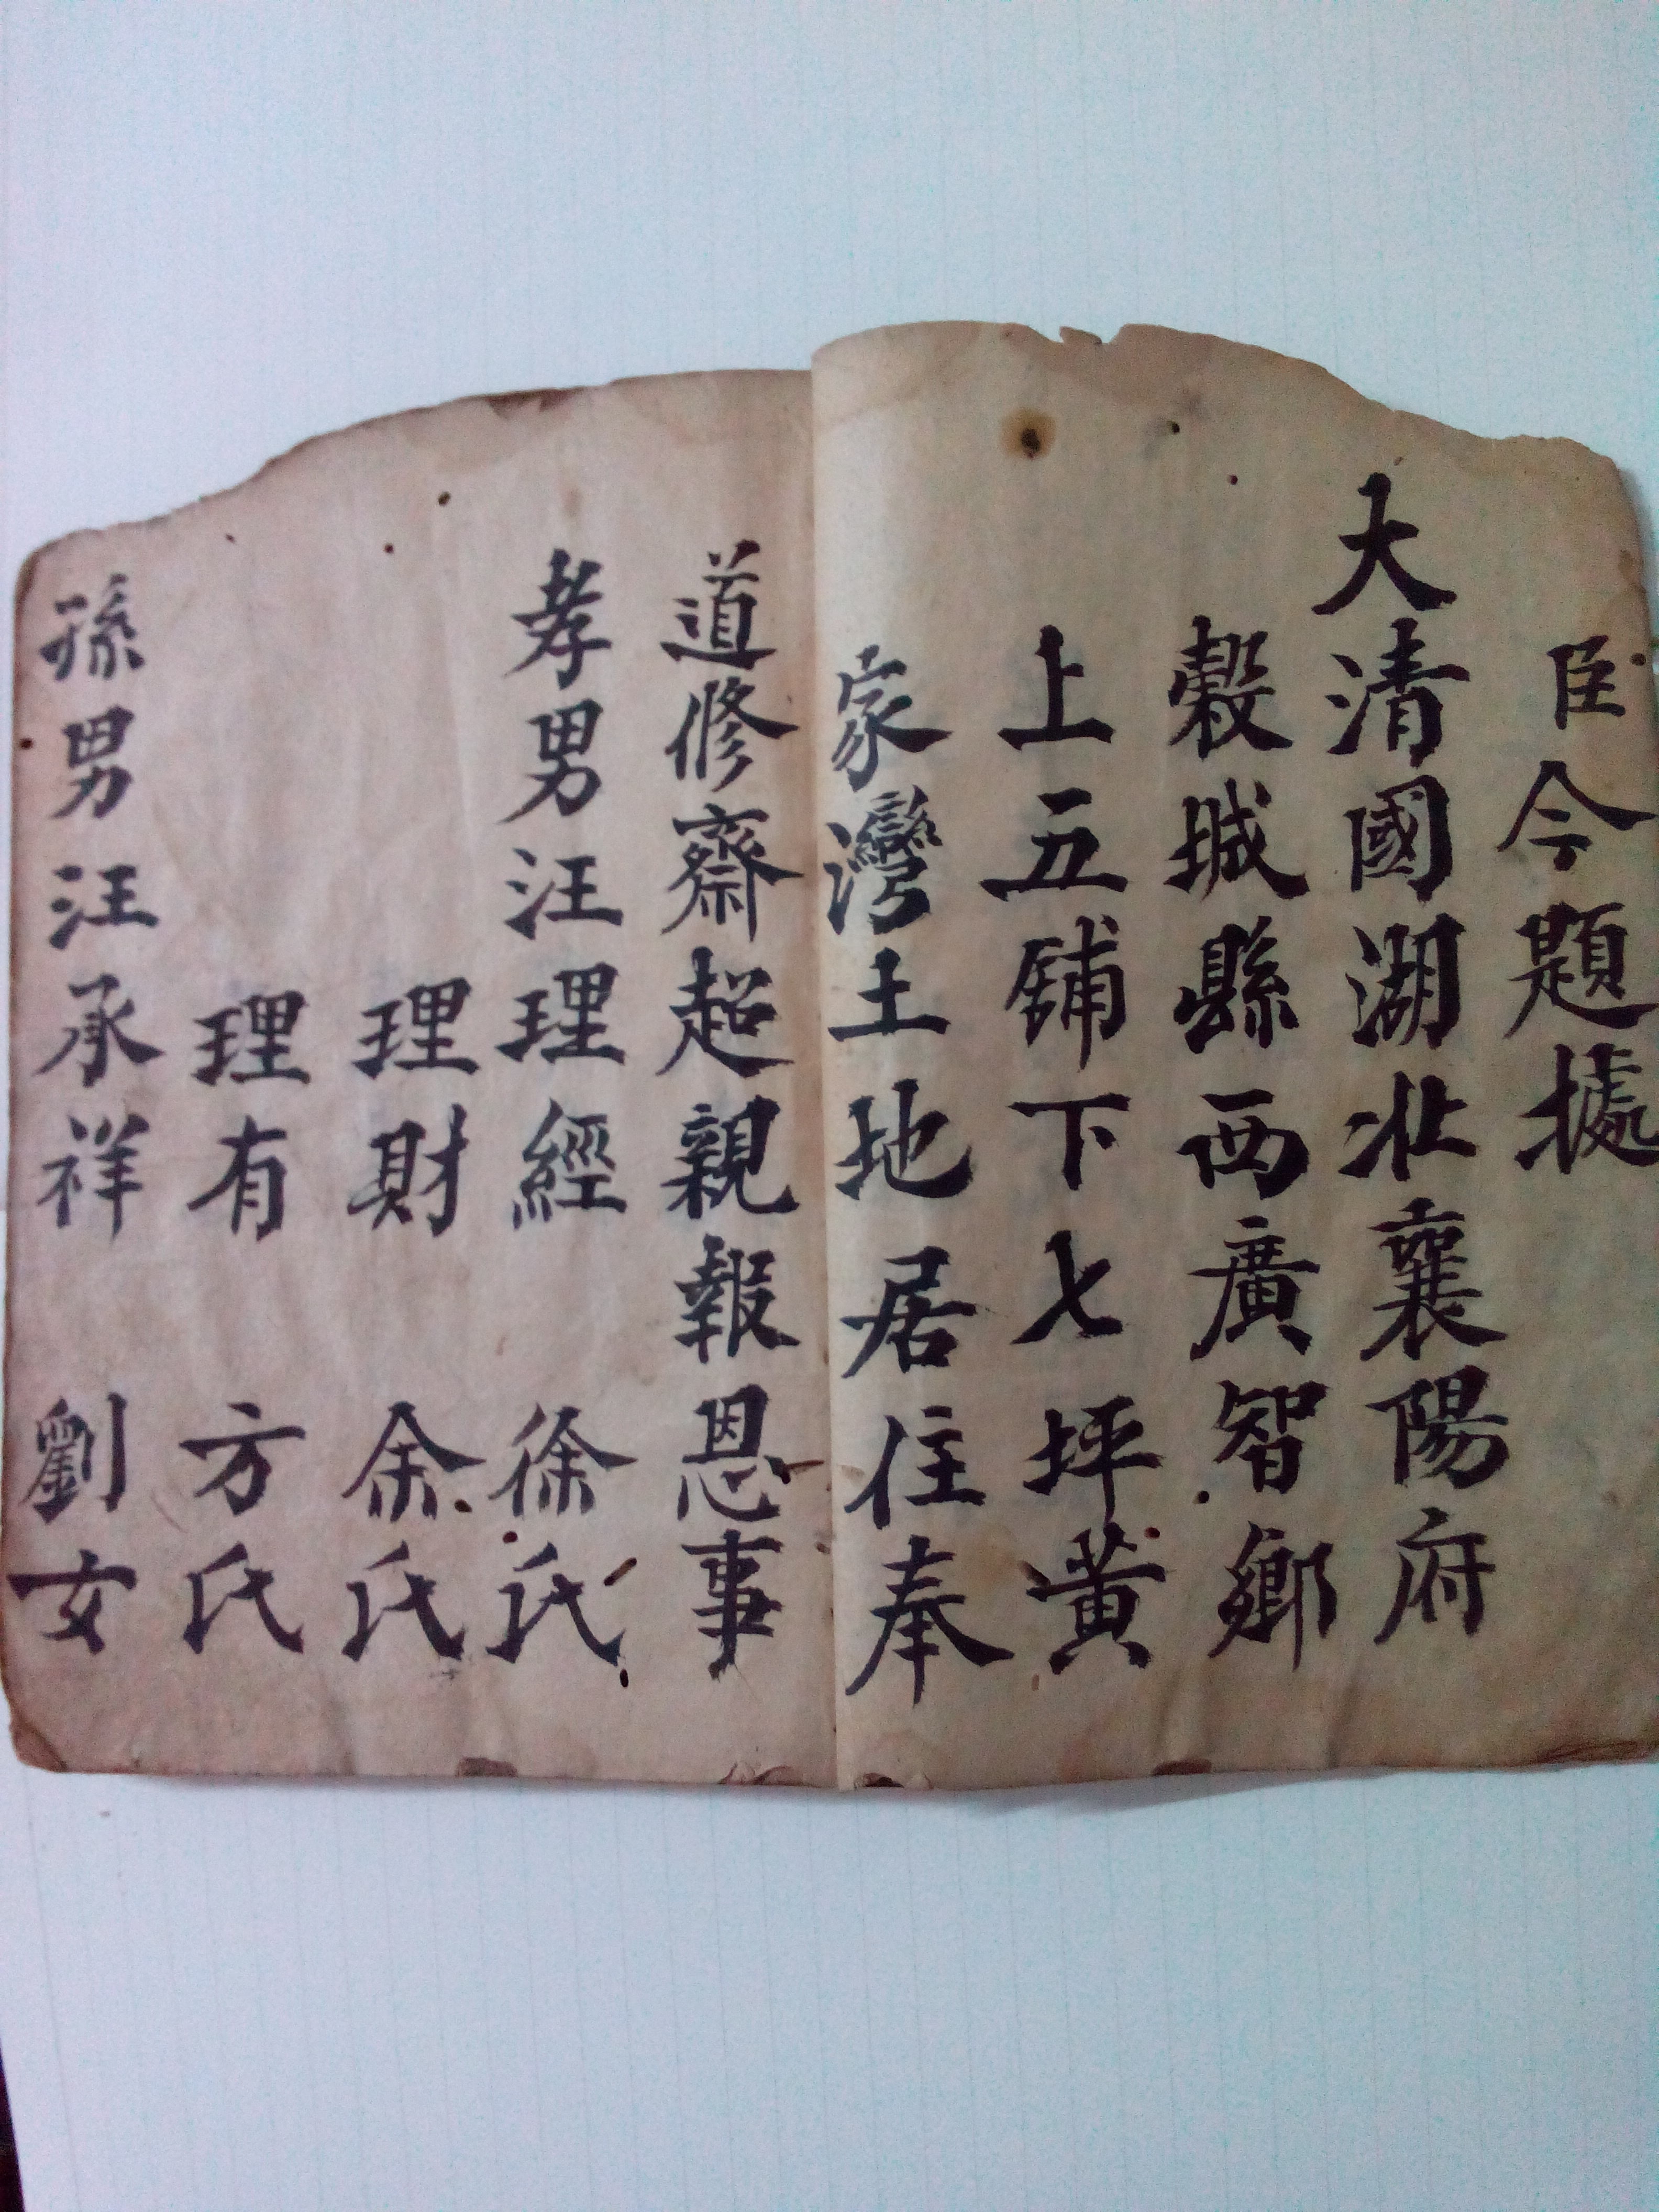 臣今題據
大清國湖北襄陽府
穀城縣西廣智鄉
上五舖下七坪黃
家灣土地居住奉
道修齋超親報恩事
孝男汪理經 徐氏
理財 余氏
理有 方氏
孫男汪承祥 劉女